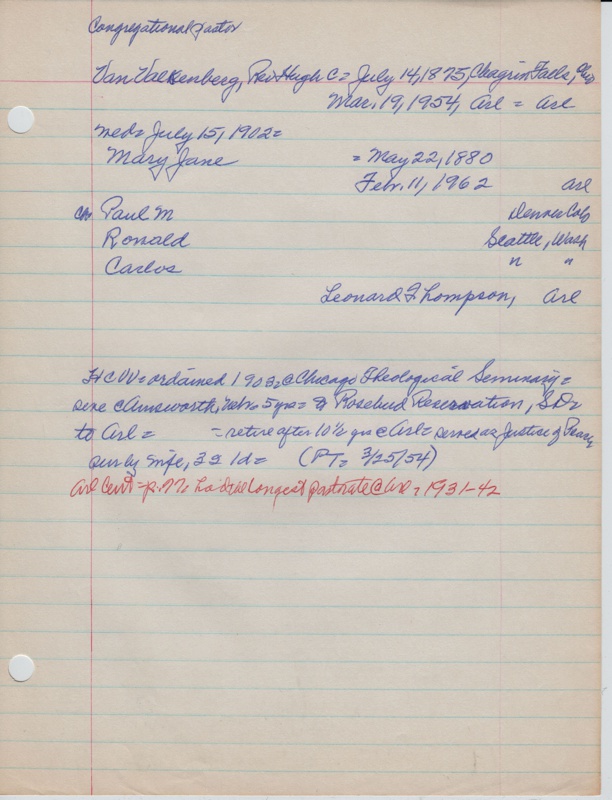 Congregational Pastor
Van Valkenberg, Rev Hugh C = July 14, 1875, Chagrin Falls, Ohio
Mar. 19, 1954, Arl = Arl
Wed = July 15, 1902 =
Mary Jane = May 22, 1880
Feb. 11, 1962 Arl
ch Paul M Denver Colo
Ronald Seattle, Wash
Carlos " "
Leonard Thompson, Arl
HCVV = ordained 1903 @ Chicago Theological Seminary =
serve @ Ainsworth, Nebr 5 yrs = Rosebud Reservation, SD =
to Arl = = retire after 10½ yrs @ Arl = served as Justice of Peace
sur by wife, 3s 1d = (PT = 3/25/54)
Arl Cent = p. 77 had longest pastorate @ Arl = 1931-42